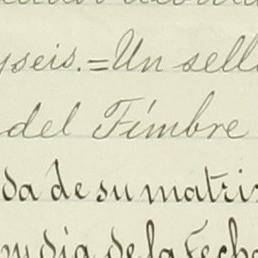 yseis.=Un sell
del Fimbre
da de su matri
n dia de la Fecha